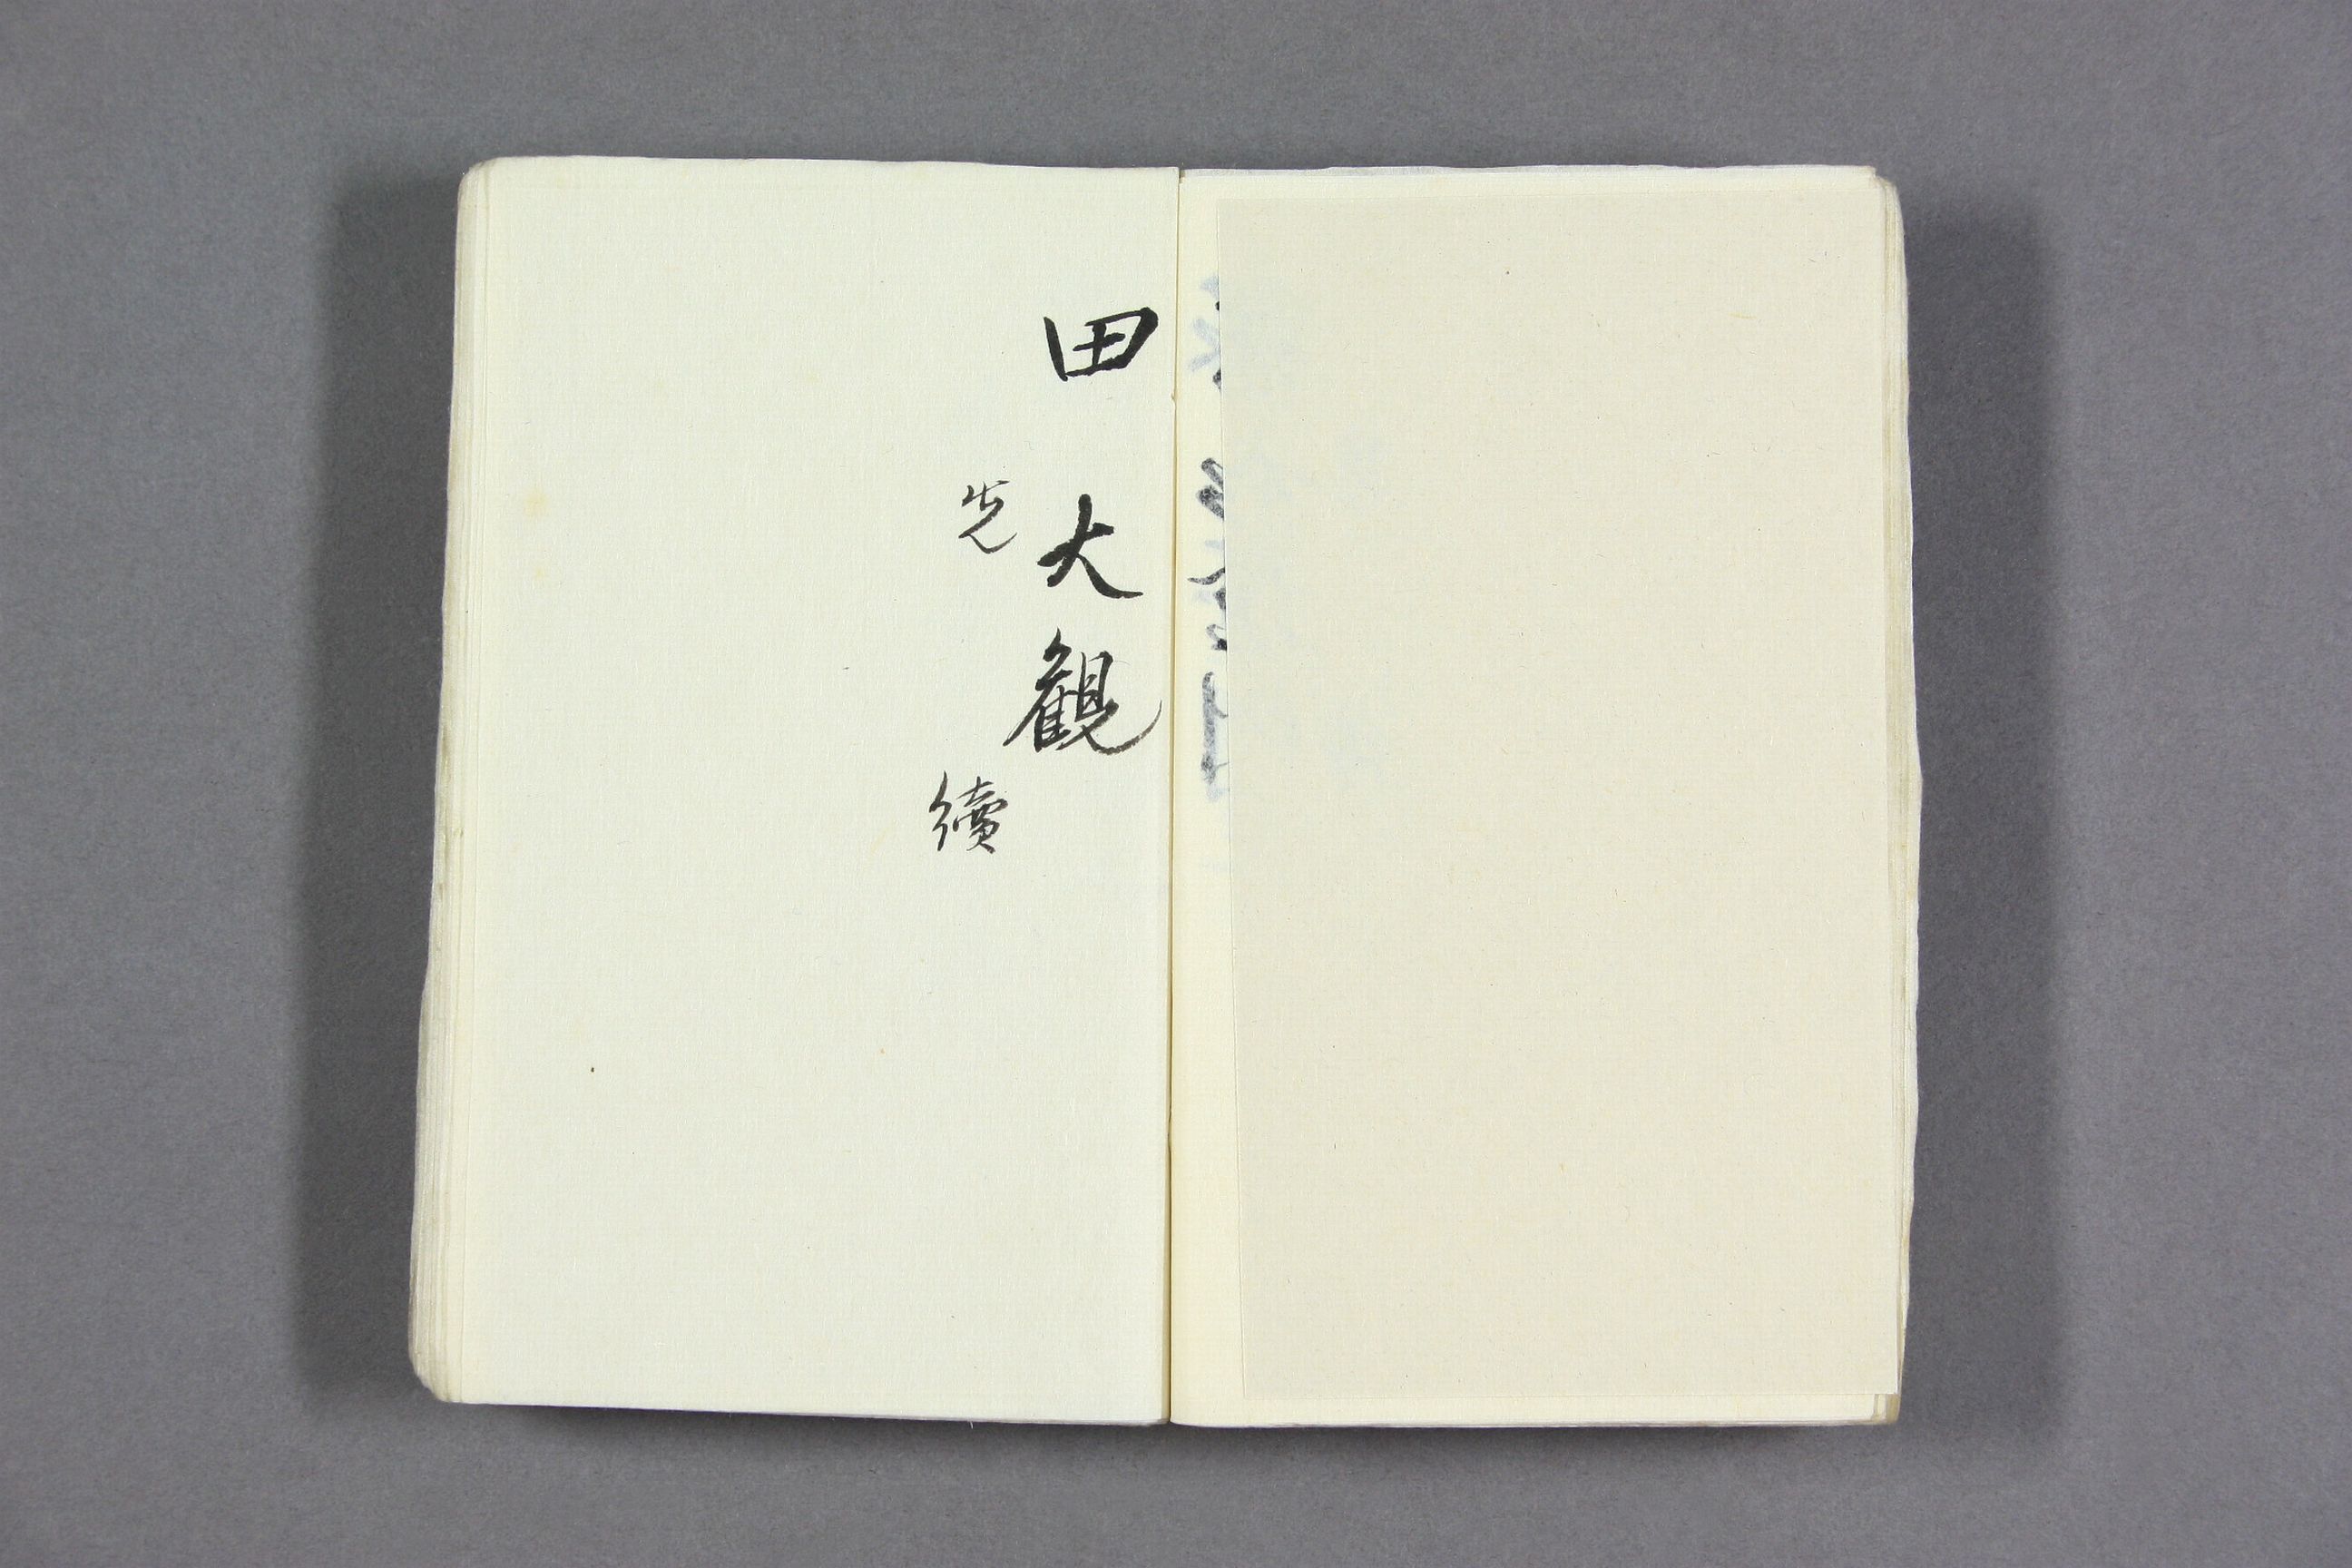 田大観
先
續